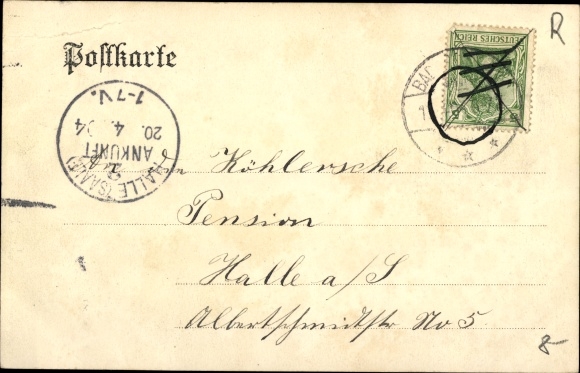 R
Postkarte
DEUTSCHES REICH
BAD
1-7V.
20. 4. 04
ANKUNFT
HALLE (SAALE)
Köhlersche
Pension
Halle a/S
Albertschmidtstr No 5
8-